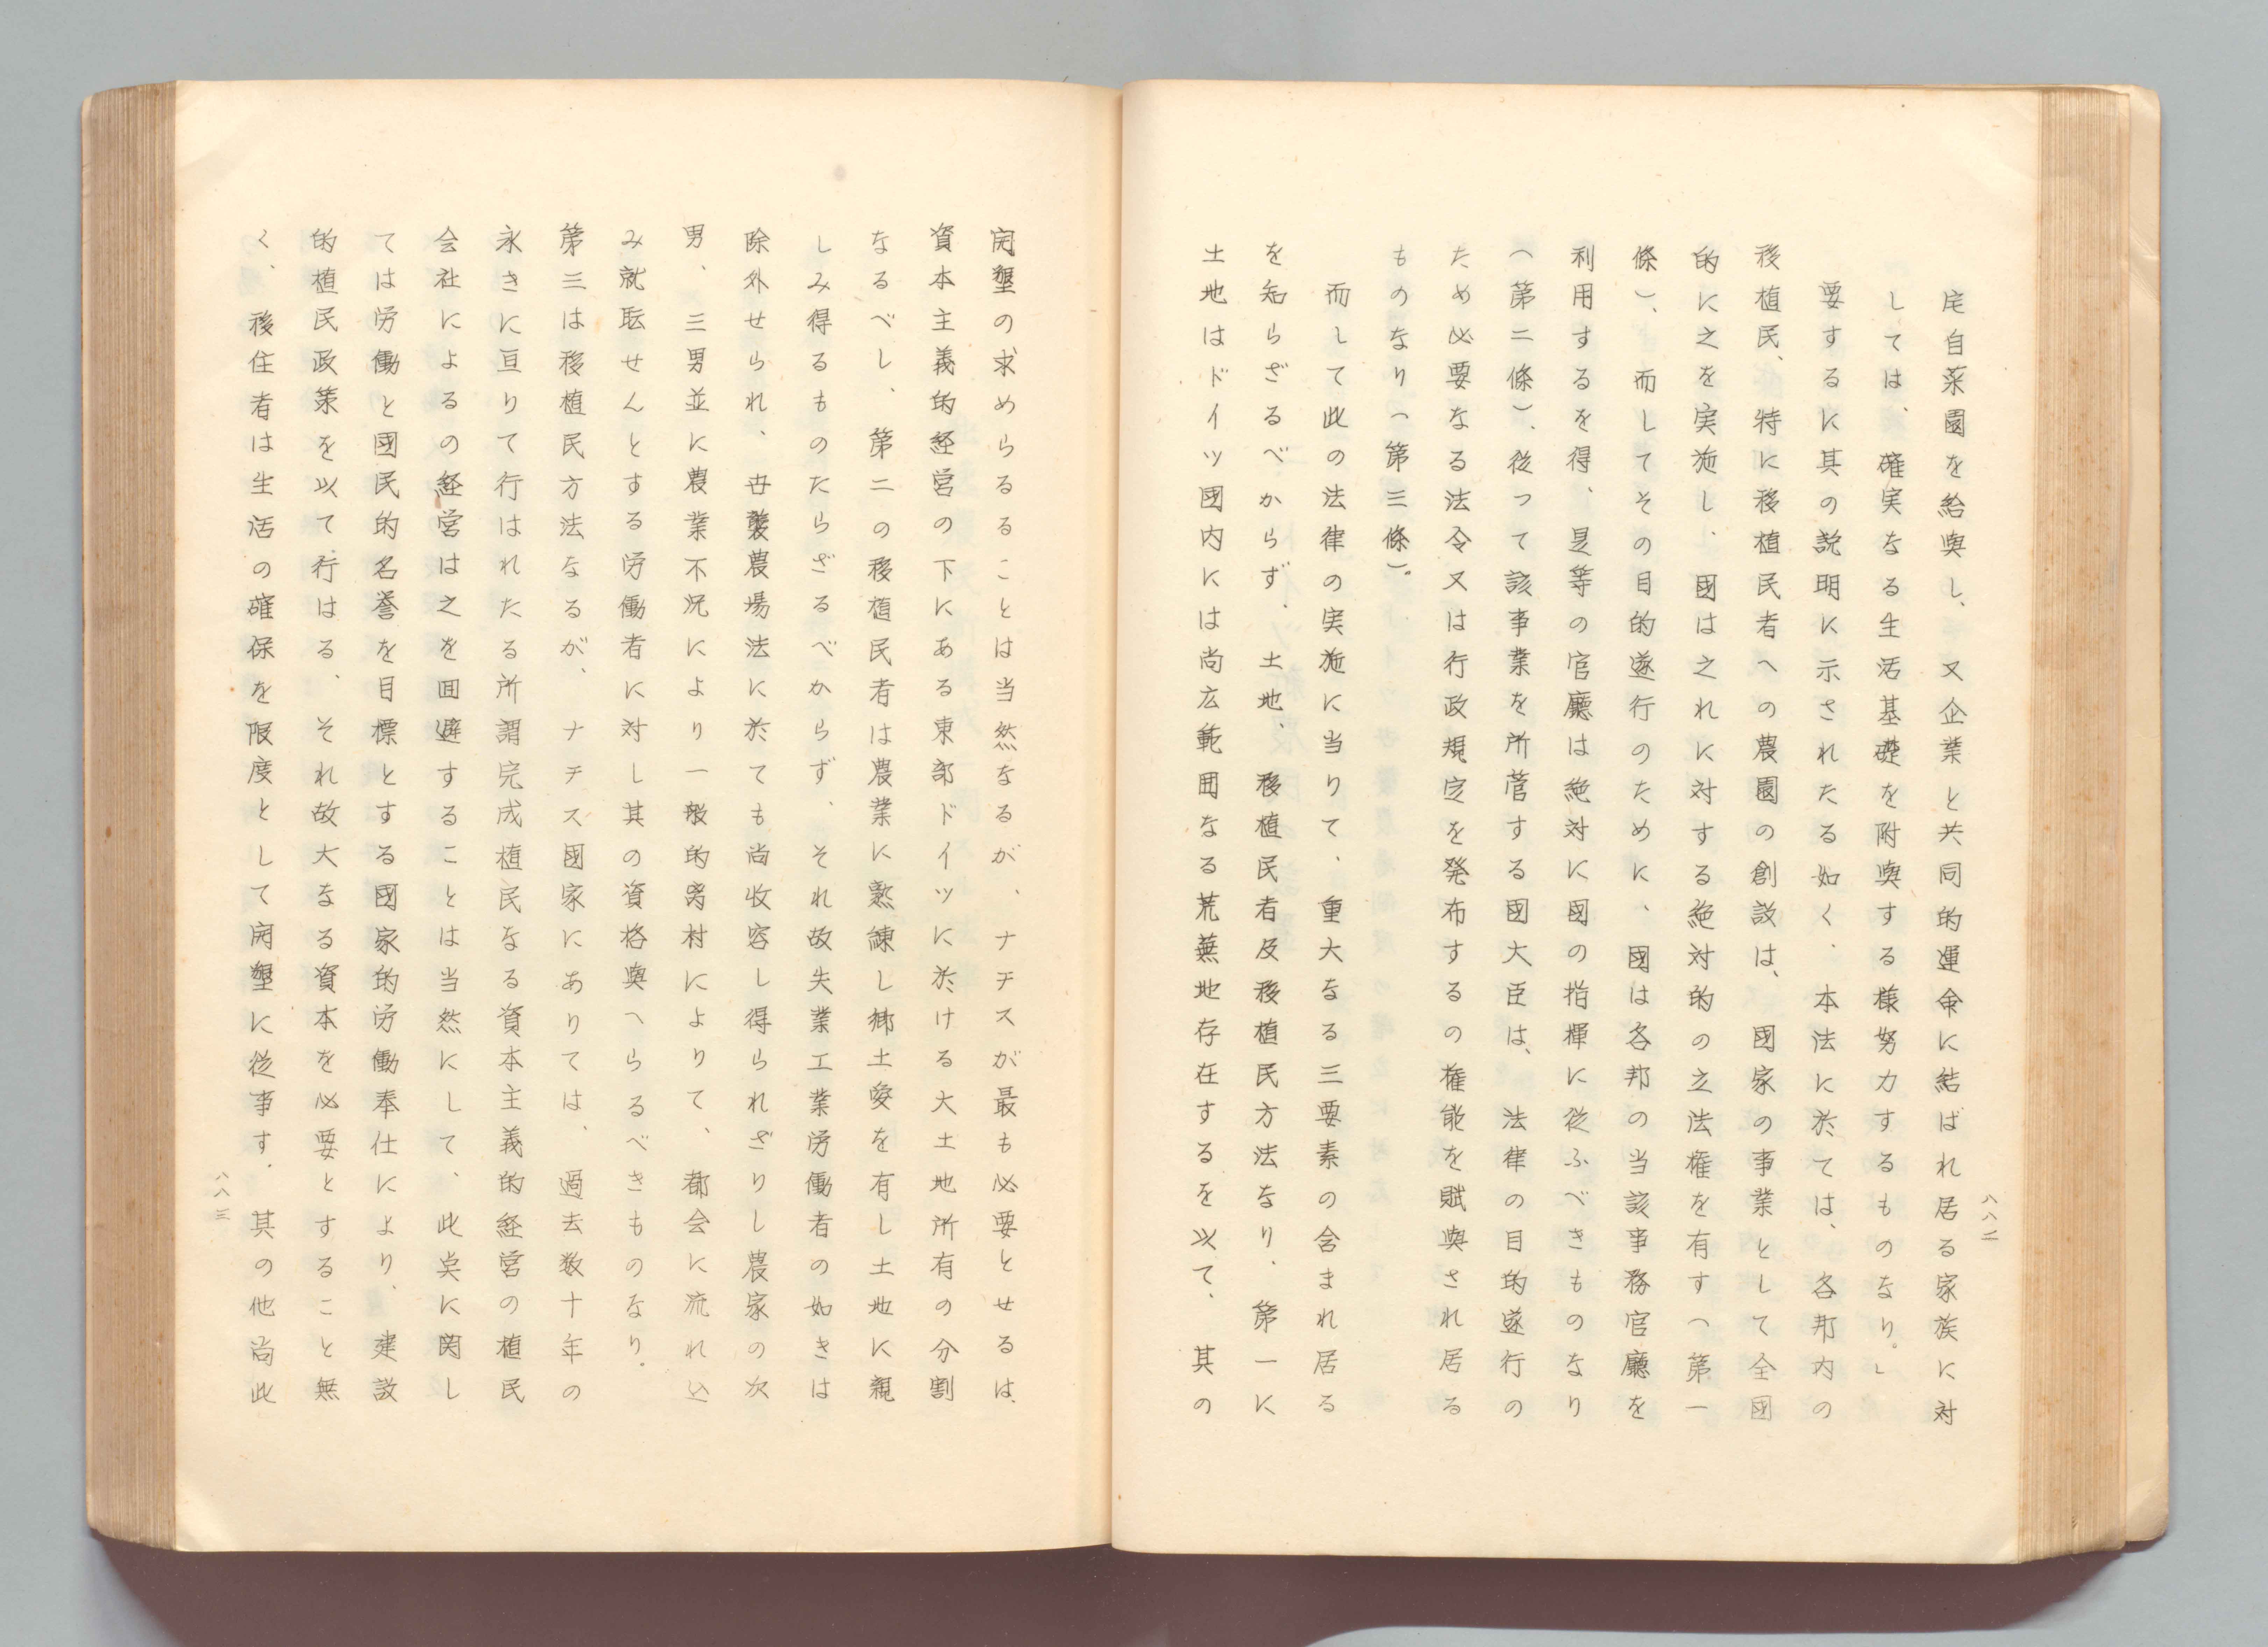 宅自菜園を給與し、又企業と共同的運命に結ばれ居る家族に対
しては、確実なる生活基礎を附與する様努力するものなり。」
要するに其の説明に示されたる如く、本法に於ては、各邦内の
移植民、特に移植民者への農園の創設は、國家の事業として全國
的に之を実施し、國は之れに対する絶対的の立法権を有す(第一
條)、而してその目的遂行のために、國は各邦の当該事務官廳を
利用するを得、是等の官廳は絶対に國の指揮に従ふべきものなり
(第二條)、従って該事業を所管する國大臣は、法律の目的遂行の
ため必要なる法令又は行政規定を発布するの権能を賦與され居る
ものなり(第三條)。
而して此の法律の実施に当りて、重大なる三要素の含まれ居る
を知らざるべからず、土地、移植民者及移植民方法なり、第一に
土地はドイツ國内には尚広範囲なる荒蕪地存在するを以て、其の
八八二
開墾の求めらるることは当然なるが、ナチスが最も必要とせるは、
資本主義的経営の下にある東部ドイツに於ける大土地所有の分割
なるべし、第二の移植民者は農業に熟練し郷土愛を有し土地に親
しみ得るものたらざるべからず、それ故失業工業労働者の如きは
除外せられ、世襲農場法に於ても尚收容し得られざりし農家の次
男、三男並に農業不況により一般的离村によりて、都会に流れ込
み就職せんとする労働者に対し其の資格與へらるべきものなり。
第三は移植民方法なるが、ナチス國家にありては、過去数十年の
永きに亘りて行はれたる所謂完成植民なる資本主義的経営の植民
会社によるの経営は之を回避することは当然にして、此奌に関し
ては労働と國民的名誉を目標とする國家的労働奉仕により、建設
的植民政策を以て行はる、それ故大なる資本を必要とすること無
く、移住者は生活の確保を限度として開墾に従事す、其の他尚此
八八三